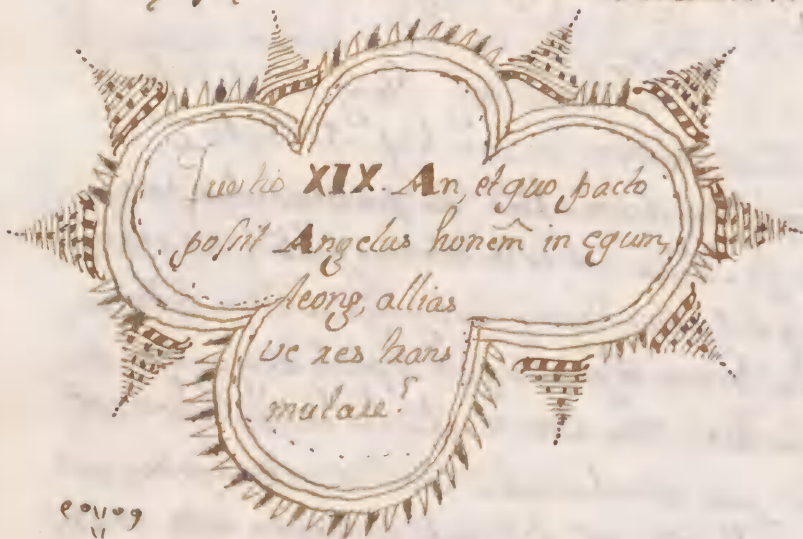 Questio XIX. An, et quo pacto
possit Angelus honem̃ in equm,
leonẽ, allias
ve res trans
mutare?